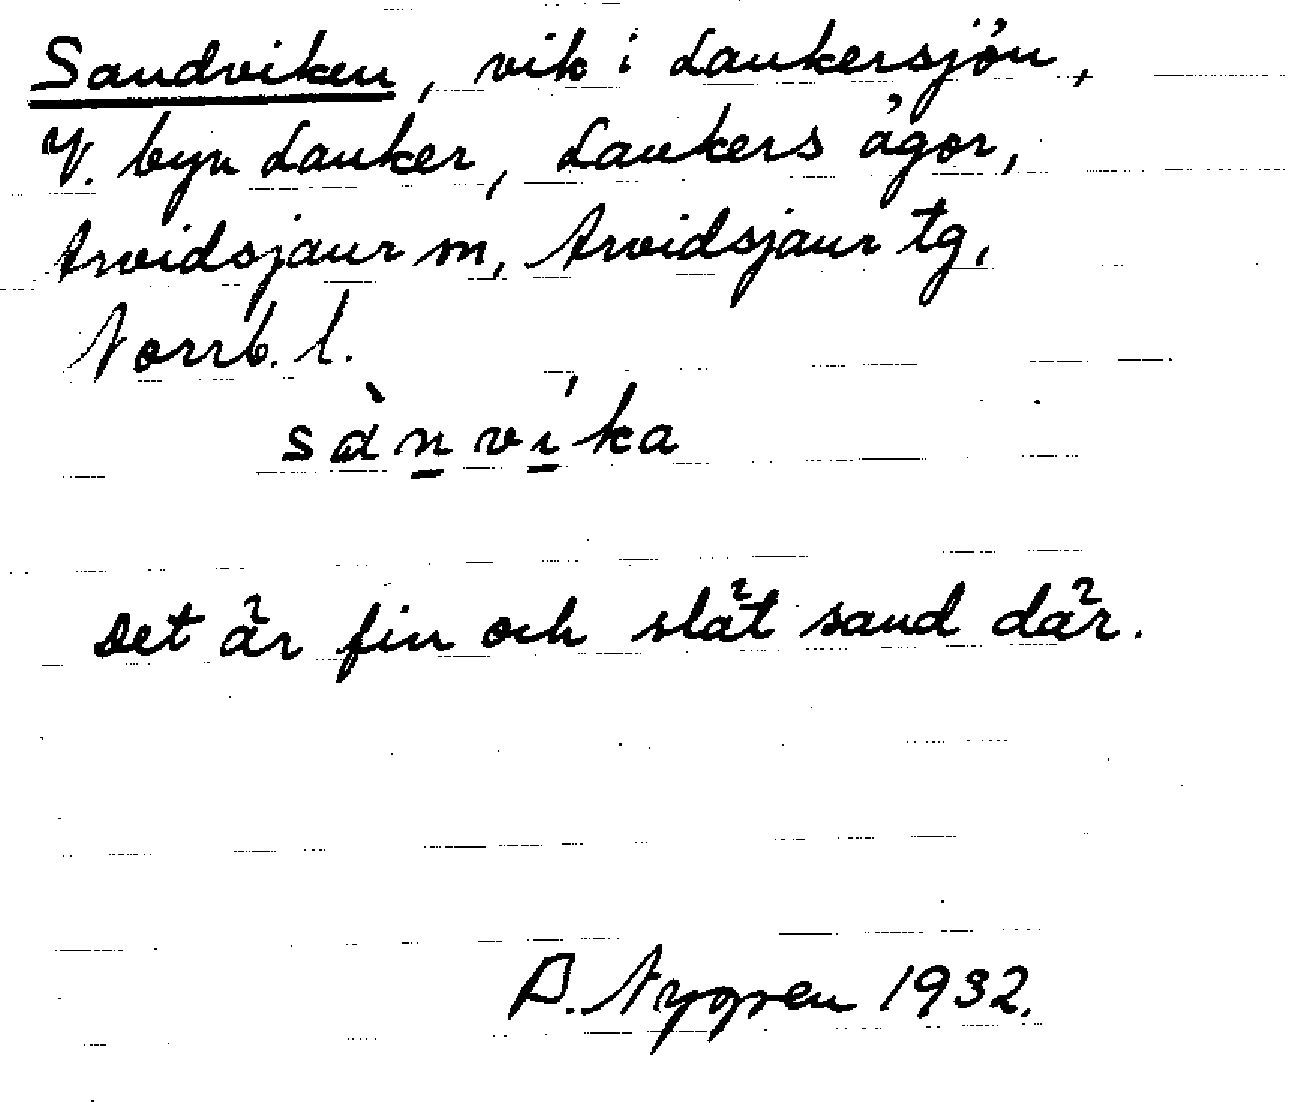 Sandviken, vik i Laukersjön,
V. byn Lauker, Laukers ägor,
Arvidsjaur sn, Arvidsjaur tg,
Norrb. l.
sànvíka
Det är fin och slät sand där.
B. Nygren 1932.